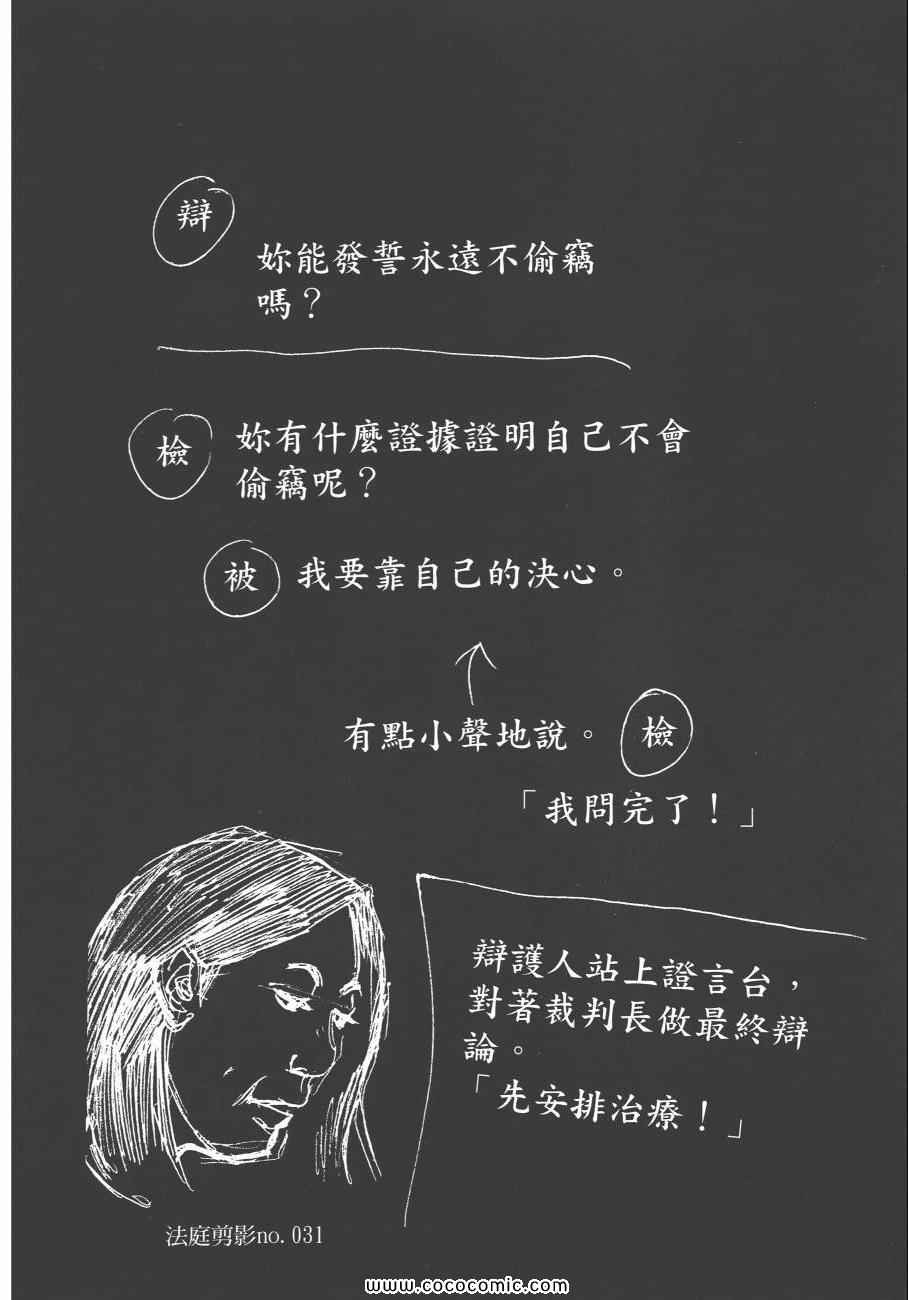 辯
妳能發誓永遠不偷竊
嗎？
檢
妳有什麼證據證明自己不會
偷竊呢？
被
我要靠自己的決心。
有點小聲地說。
檢
「我問完了！」
辯護人站上證言台，
對著裁判長做最終辯
論。
「先安排治療！」
法庭剪影no. 031
www.cococomic.com